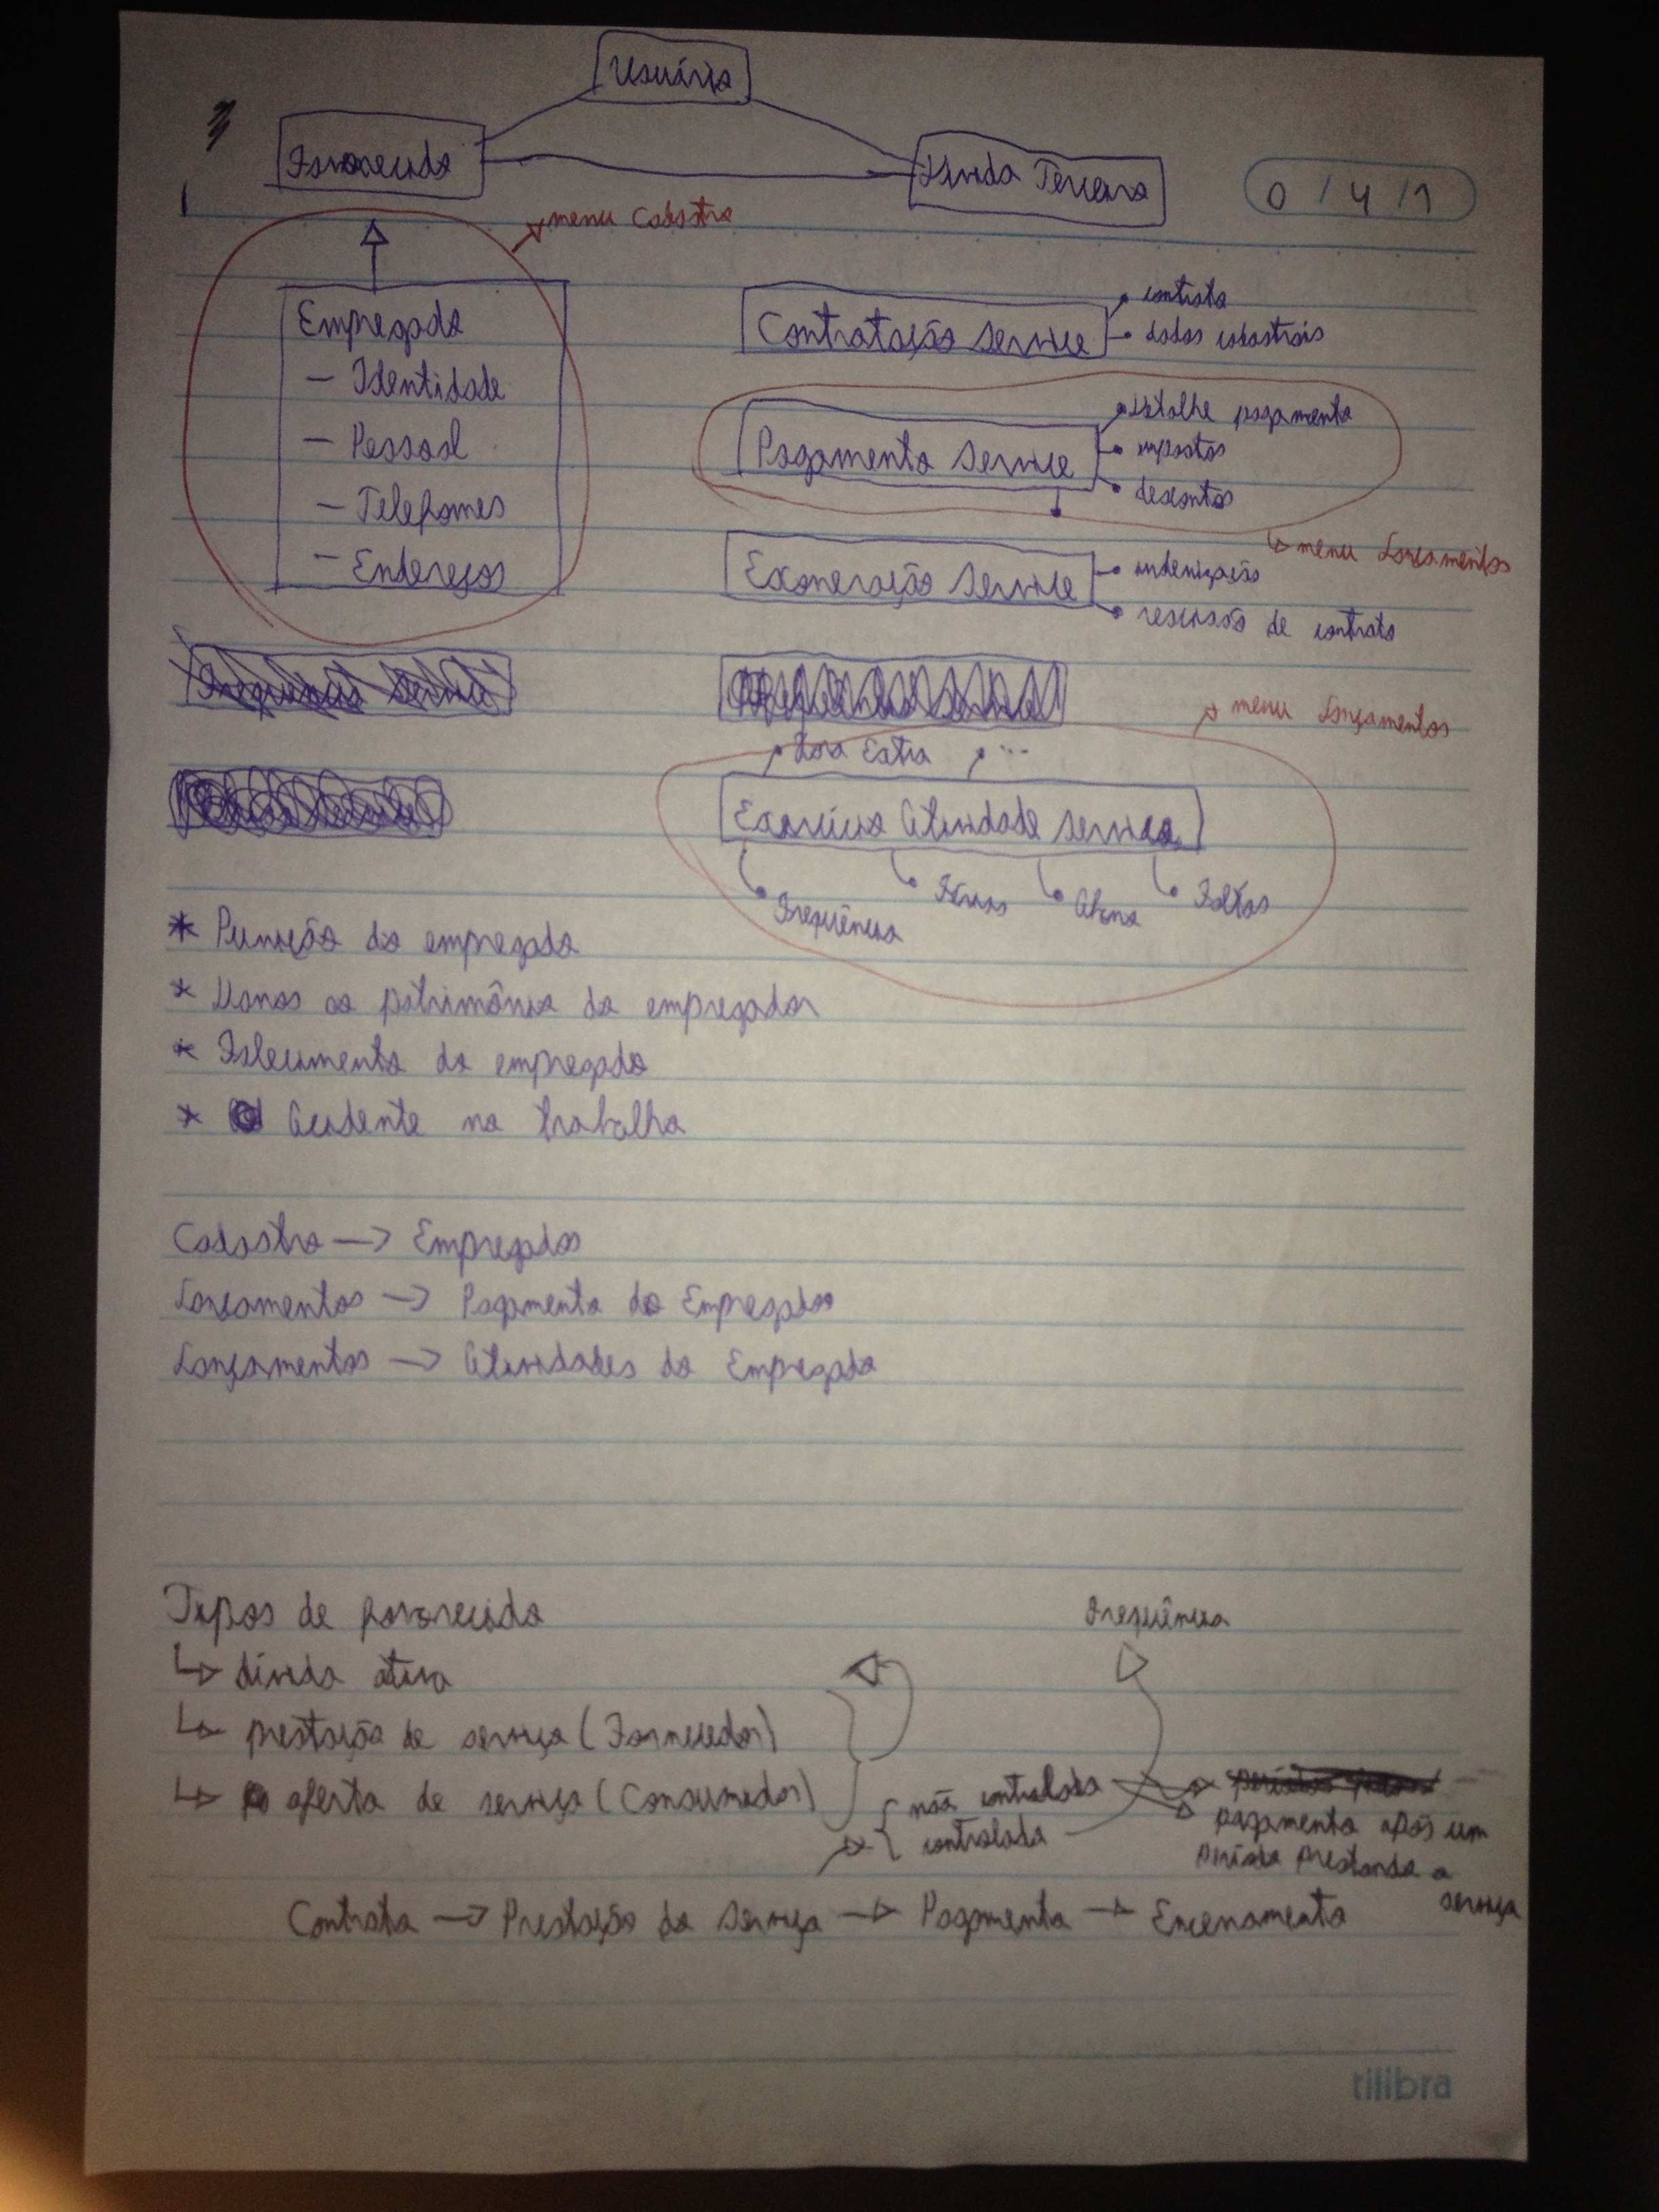 Usuário
Favorecido
Dívida Terceiro
0 / 4 / 1
menu Cadastro
Empregado
- Identidade
- Pessoal
- Telefones
- Endereços
Contratação Service
contrato
dados cadastrais
Pagamento Service
detalhe pagamento
impostos
descontos
menu Lançamentos
Exoneração Service
indenização
rescisão de contrato
menu Lançamentos
Hora Extra
...
Exercício Atividade Service
Frequência
Férias
Abono
Faltas
* Punição do empregado
* Danos ao patrimônio do empregador
* Falecimento do empregado
* Acidente no trabalho
Cadastro → Empregados
Lançamentos → Pagamento do Empregado
Lançamentos → Atividades do Empregado
Tipos de favorecido
↳ dívida ativa
↳ prestação de serviço (Fornecedor)
↳ oferta de serviço (Consumidor)
Frequência
não controlada
controlada
pagamento após um
período prestando o
serviço
Contrato → Prestação do Serviço → Pagamento → Encerramento
tilibra